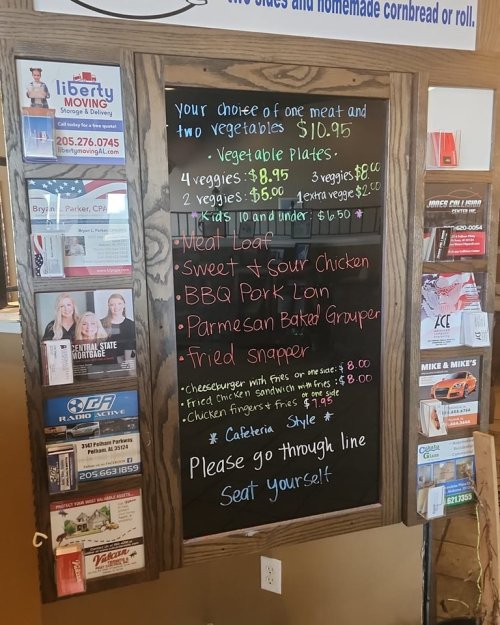 two sides and homemade cornbread or roll.
Your choice of one meat and
two vegetables $10.95
· Vegetable Plates ·
4 veggies: $8.95 3 veggies $8.00
2 veggies: $5.00 1 extra veggie $2.00
* Kids 10 and under: $6.50 *
· Meat Loaf
· Sweet & Sour Chicken
· BBQ Pork Loin
· Parmesan Baked Grouper
· Fried Snapper
· Cheeseburger with fries or one side: $8.00
· Fried Chicken Sandwich with fries: $8.00
or one side
· Chicken fingers & fries $7.95
* Cafeteria Style *
Please go through line
Seat yourself
liberty
MOVING
Storage & Delivery
Call today for a free quote!
205.276.0745
libertymovingAL.com
Bryan L. Parker, CPA
CENTRAL STATE
MORTGAGE
RADIO ACTIVE
3147 Pelham Parkway
Pelham, AL 35124
205.663.1859
PROTECT YOUR MOST VALUABLE ASSETS...
Vulcan
JONES COLLISION
CENTER INC.
620-0054
ACE
MIKE & MIKE'S
Glass